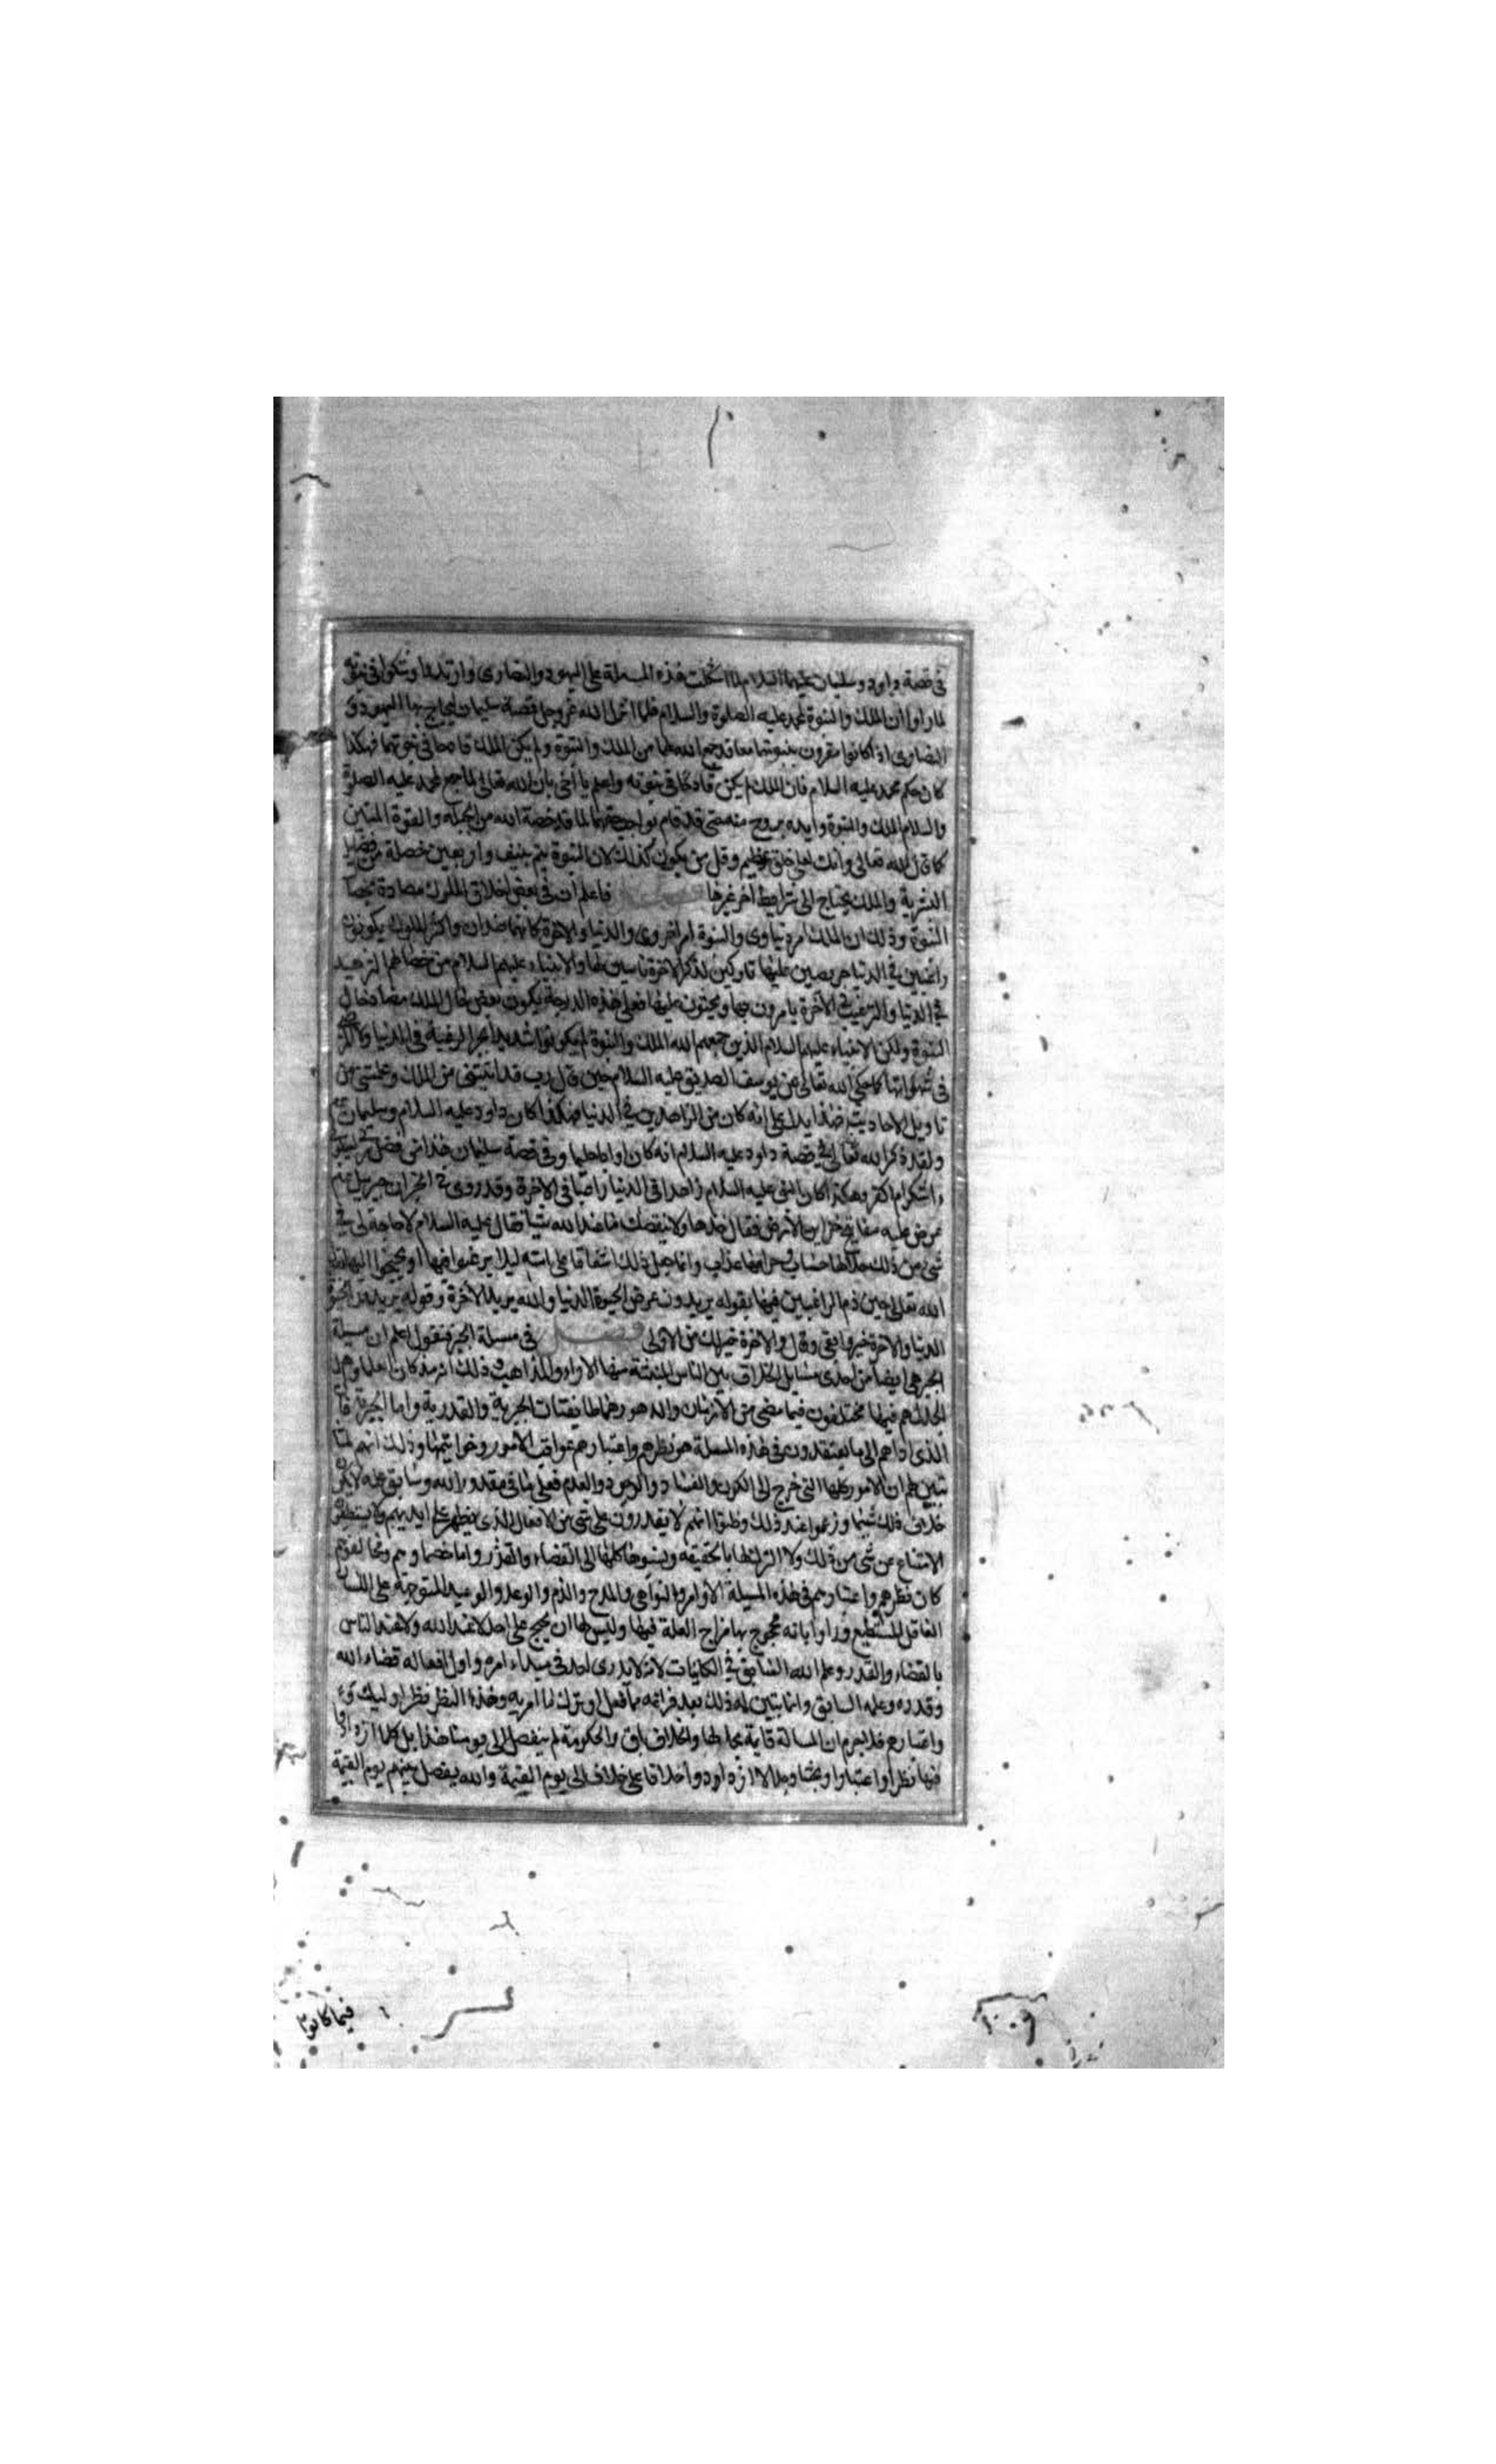 فى قصة داود وسليمان عليهما السلام لما اشكلت هذه المسئلة على اليهود والنصارى وارتابوا وشكوا فى نبوته
لما راوا ان الملك والنبوة لمحمد عليه الصلوة والسلام فلما انزل الله عز وجل قصة سليمان ليحاج بها اليهود و
النصارى اذ كانوا مقرون بنبوتهما معا قد جمع الله لهما من الملك والنبوة ولم يكن الملك قادحا فى نبوتهما فهكذا
كان حكم محمد عليه السلام فان الملك لم يكن قادحا فى نبوته واعلم يا اخى بان الله تعالى لما جمع لمحمد عليه الصلوة
والسلام الملك والنبوة وايده بروح منه حتى قد قام بواجبهما لما قد خصه الله من الجبلة والقوة المتين
كما قال الله تعالى وانك لعلى خلق عظيم وقل من يكون كذلك لان النبوة يتم بنيف واربعين خصلة من فضايل
البشرية والملك يحتاج الى شرايط اخر غيرها فصل فاعلم ان فى بعض اخلاق الملوك مضادة لخصال
النبوة وذلك ان الملك امر دنياوى والنبوة امر اخروى والدنيا والاخرة كانهما ضدان واكثر الملوك يكونون
راغبين فى الدنيا حريصين عليها تاركين لذكر الاخرة ناسين لها والانبياء عليهم السلام من خصالهم التزهيد
فى الدنيا والترغيب فى الآخرة يامرون بها ويحثون عليها فعلى هذه الدرجة يكون بعض خصال الملك مضادا لخصال
النبوة ولكن الانبياء عليهم السلام الذين جمع لهم الله الملك والنبوة لم يكونوا شديدا الرغبة فى الدنيا
فى شهواتها كما حكى الله تعالى عن يوسف الصديق عليه السلام حين قال رب قد اتيتنى من الملك وعلمتنى من
تاويل الاحاديث فهذا يدل على انه كان من الزاهدين فى الدنيا فهكذا كان داود عليه السلام وسليمان عم
ولقد ذكر الله تعالى فى قصة داود عليه السلام انه كان اوابا حليما وفى قصة سليمان هذا من فضل ربى ليبلونى
ءاشكر ام اكفر وهكذا كان النبى عليه السلام زاهدا فى الدنيا راضيا فى الاخرة وقد روى فى الخبر ان جبريل عم
عرض عليه مفاتيح خزاين الأرض فقال خذها ولا ينقصك مما عند الله شيئا فقال عليه السلام لا حاجة لى فى
شئ من ذلك حلالها حساب وحرامها عذاب وانما جعل ذلك اشفاقا على امته ليلا يرغبوا فيها
الله تعالى حين ذم الراغبين فيها بقوله يريدون عرض الحيوة الدنيا والله يريد الآخرة وقوله يريدون الحيوة
الدنيا والآخرة خير وابقى وقال والاخرة خير لك من الاولى فصل فى مسئلة الجبر فنقول اعلم ان مسئلة
الجبر هى ايضا من احدى مسايل الخلاف بين الناس المنبثة منها الاراء والمذاهب وذلك العلماء واهل
الجدل هم فيها مختلفون فيما مضى من الأزمان والدهور وهما طايفتان الجبرية والقدرية واما الجبرية فان
الذى اداهم الى ما يعتقدون فى هذه المسئلة هو نظرهم واعتبارهم عواقب الامور وخواتيمها وذلك انهم لما
تبين لهم ان الامور كلها التى تخرج الى الكون والفساد والوجود والعدم فعلى ما فى مقدور الله وسابق علمه لا يكون
خلاف ذلك شيئا وزعموا عند ذلك وظنوا انهم لا يقدرون على شئ من الافعال الذى يظهر على ايديهم ولا يستطيعون
الامتناع عن شئ من ذلك ولا الترك لها بالحقيقة وينسبوها كلها الى القضاء والقدر واما خصماؤهم ومخالفوهم
كان نظرهم واعتبارهم فى هذه المسئلة الأوامر والنواهى والمدح والذم والوعد والوعيد المتوجهة على الانسان
العاقل المستطيع وراوا بانه محجوج بها مزاح العلة فيها وليس لها ان يحتج على احد لا عند الله ولا عند الناس
بالقضاء والقدر وعلم الله السابق فى الكائنات لانه لا يدرى احد فى مبداء امره واول افعاله قضاء الله
وقدره وعلمه السابق وانما يتبين له ذلك بعد فراغه مما فعل او ترك لما امر به وهذا النظر نظر اوليك
واعتبارهم فلا جرم ان المسئلة قايمة بحالها والخلاف باق والحكومة لم ينفصل الى يومنا هذا بل كلما ازدادوا
فيها نظرا واعتبارا وبحثا وجدالا ازدادوا خلافا على خلاف الى يوم القيمة والله يفصل بينهم يوم القيمة
فيما كانوا